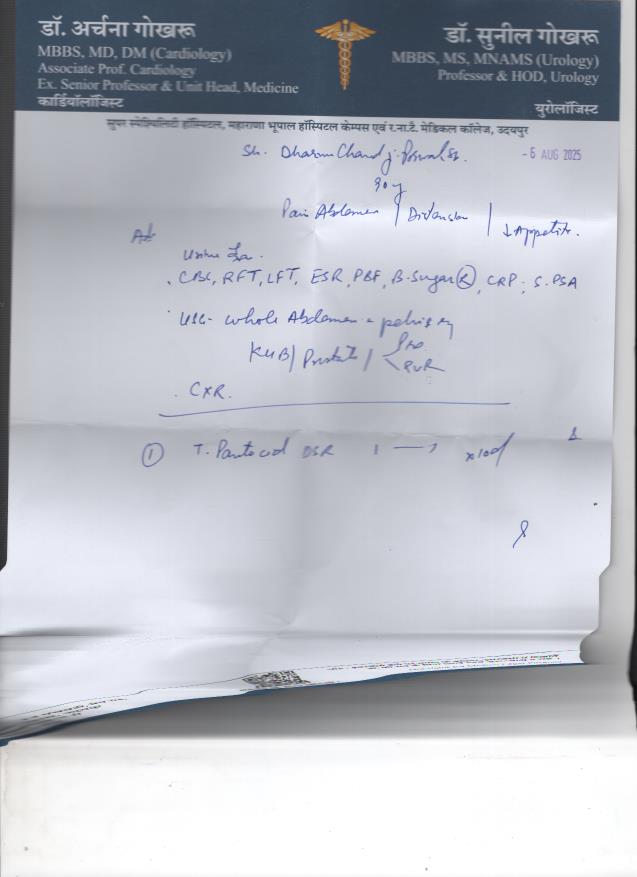 डॉ. अर्चना गोखरू
MBBS, MD, DM (Cardiology)
Associate Prof. Cardiology
Ex. Senior Professor & Unit Head, Medicine
कार्डियॉलॉजिस्ट
डॉ. सुनील गोखरू
MBBS, MS, MNAMS (Urology)
Professor & HOD, Urology
युरोलॉजिस्ट
सुपर स्पेशियलिटी हॉस्पिटल, महाराणा भूपाल हॉस्पिटल केम्पस एवं र.ना.टै. मेडिकल कॉलेज, उदयपुर
Sh. Dharam Chand ji
- 6 AUG 2025
90 y
Pain Abdomen / Distension / ↓ Appetite.
Urine
. CBC, RFT, LFT, ESR, PBF, B-Sugar (R), CRP, S. PSA
USG - whole Abdomen & pelvis
KUB / Prostate / Pre
PVR
. CXR.
① T. Pantocid DSR 1 — x10d